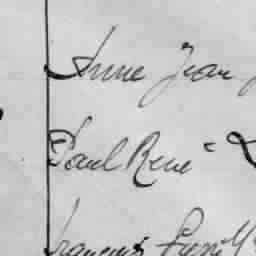 Anne Jean
Paul René
François